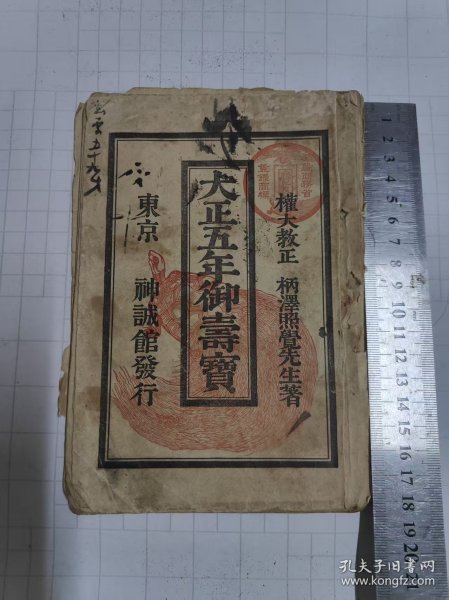 權大教正 柄澤照覺先生著
大正五年御壽寶
東京 神誠館發行
1 2 3 4 5 6 7 8 9 10 11 12 13 14 15 16 17 18 19 20
孔夫子旧书网
www.kongfz.com